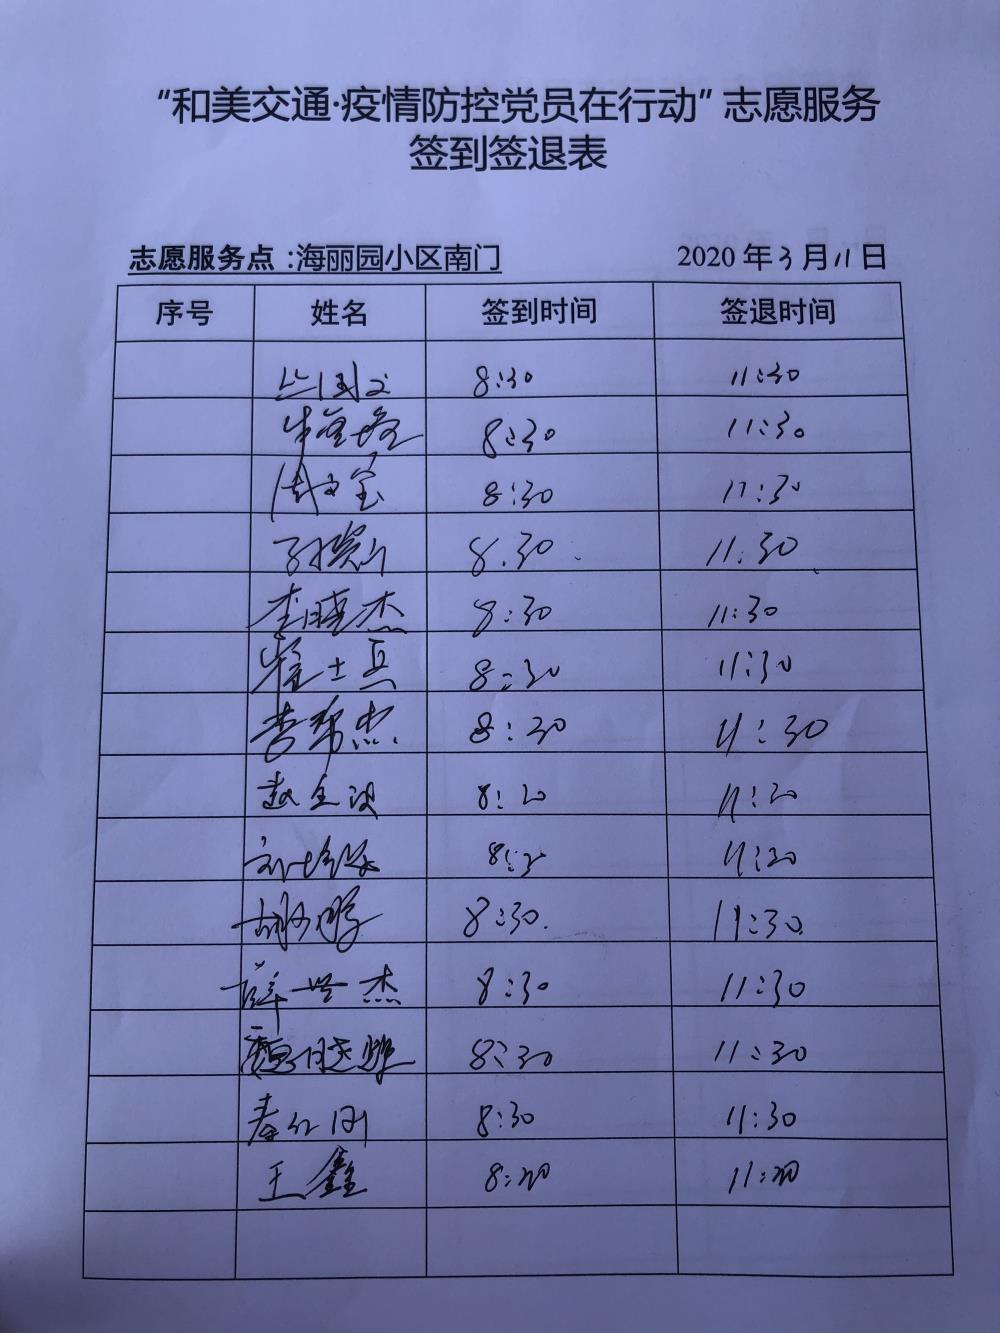 “和美交通·疫情防控党员在行动”志愿服务
签到签退表
志愿服务点:海丽园小区南门 2020年3月11日
序号 姓名 签到时间 签退时间
8:30 11:30
8:30 11:30
周文宝 8:30 11:30
8:30 11:30
李晓杰 8:30 11:30
士兵 8:30 11:30
8:30 11:30
赵金波 8:30 11:30
11:30
胡鹏 8:30 11:30
薛世杰 8:30 11:30
魏晓雅 8:30 11:30
秦红刚 8:30 11:30
王鑫 8:30 11:30